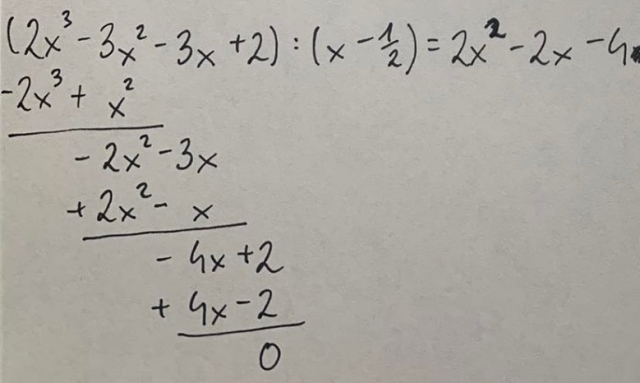 (2x³ - 3x² - 3x + 2) : (x - 1/2) = 2x² - 2x - 4
-2x³ + x²
- 2x² - 3x
+ 2x² - x
- 4x + 2
+ 4x - 2
0